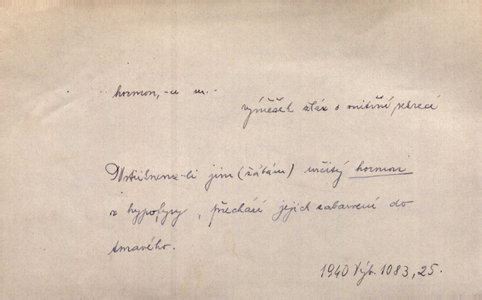 hormon, -u m.
výměšek žláz s vnitřní sekrecí
Vstříkneme-li jim (žábám) určitý hormon
z hypofysy, přechází jejich zabarvení do
tmavého.
1940 Výb. 1083, 25.